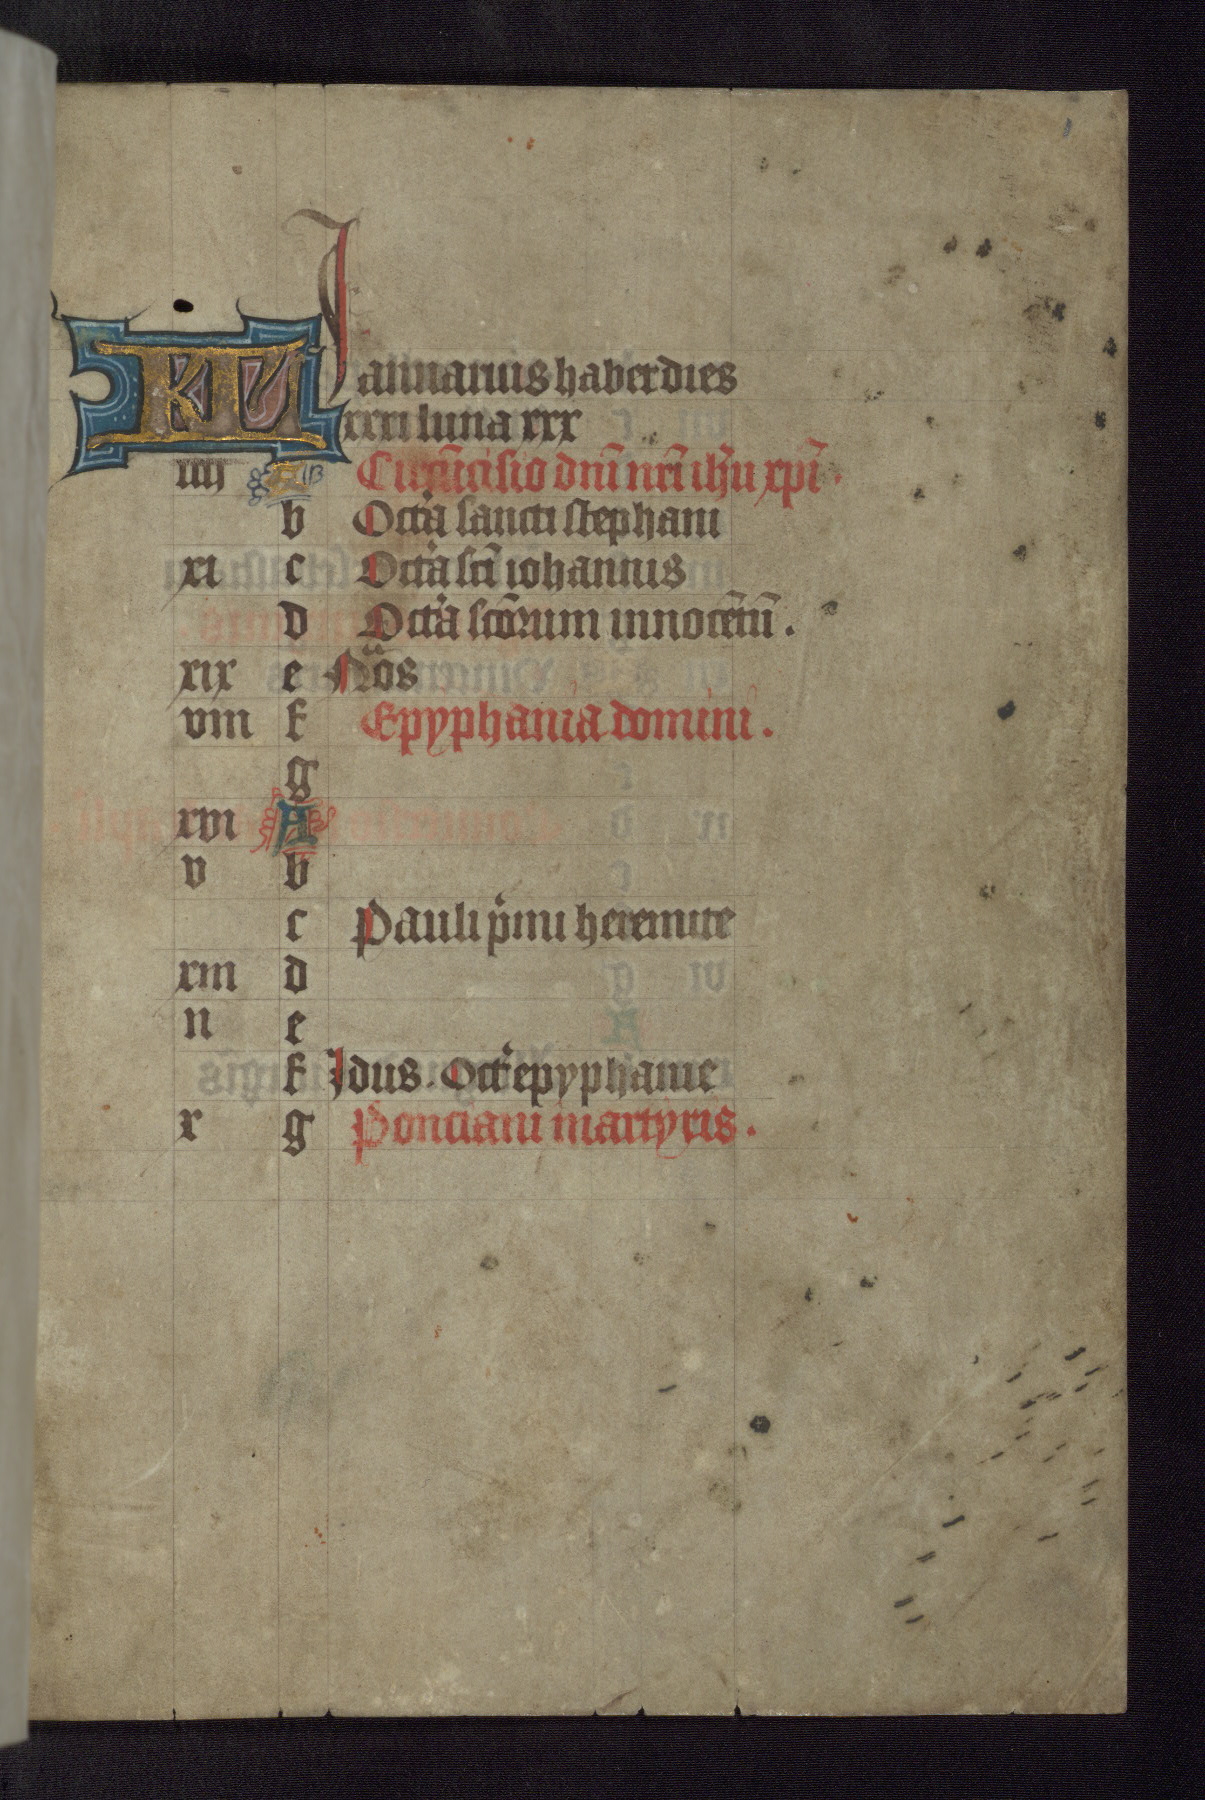 KL Januarius habet dies
xxxi luna xxx
iii A Circũcisio dñi nr̃i ih̃u xp̃i.
b Octa͛ sancti stephani
xi c Octa͛ sc̃i iohannis
d Octa͛ sc̃orum innocẽtũ.
xix e Nõs
viii f Epyphania domini.
g
xvi A
v b
c Pauli pͥmi heremite
xiii d
ii e
f Idus. Oct͛ epyphanie
x g Ponciani martyris.